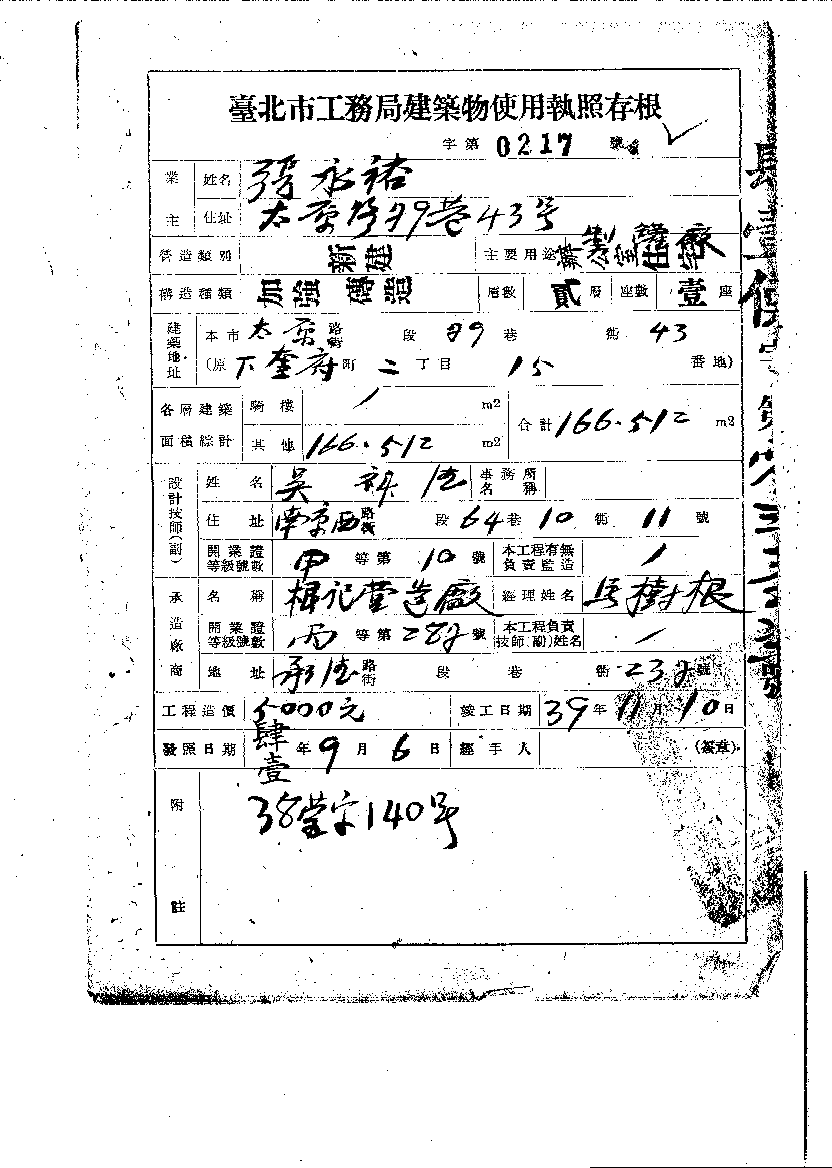 臺北市工務局建築物使用執照存根
字第 0217 號
業主 姓名 張永祐
住址 太原路99巷43号
營造類別 新建 主要用途 製 廠 辦公室 住宅
構造種類 加強磚造 層數 貳層 座數 壹座
建築地址 本市太原路街 段 99巷 衖 43
(原下奎府町二丁目 15 番地)
各層建築面積綜計 騎樓 / m2 合計 166.512 m2
其他 166.512 m2
設計技師(副) 姓名 吳 事務所名稱
住址 南京西路街 段 64巷 10衖 11號
開業證等級號數 甲等第10號 本工程有無負責監造 /
承造廠商 名稱 楫記營造廠 經理姓名 吳樹根
開業證等級號數 丙等第282號 本工程負責技師(副)姓名 /
地址 承德路街 段 巷 衖 232號
工程造價 5000元 竣工日期 39年11月10日
發照日期 肆壹年9月6日 經手人 (簽章)
附註 38營字140号